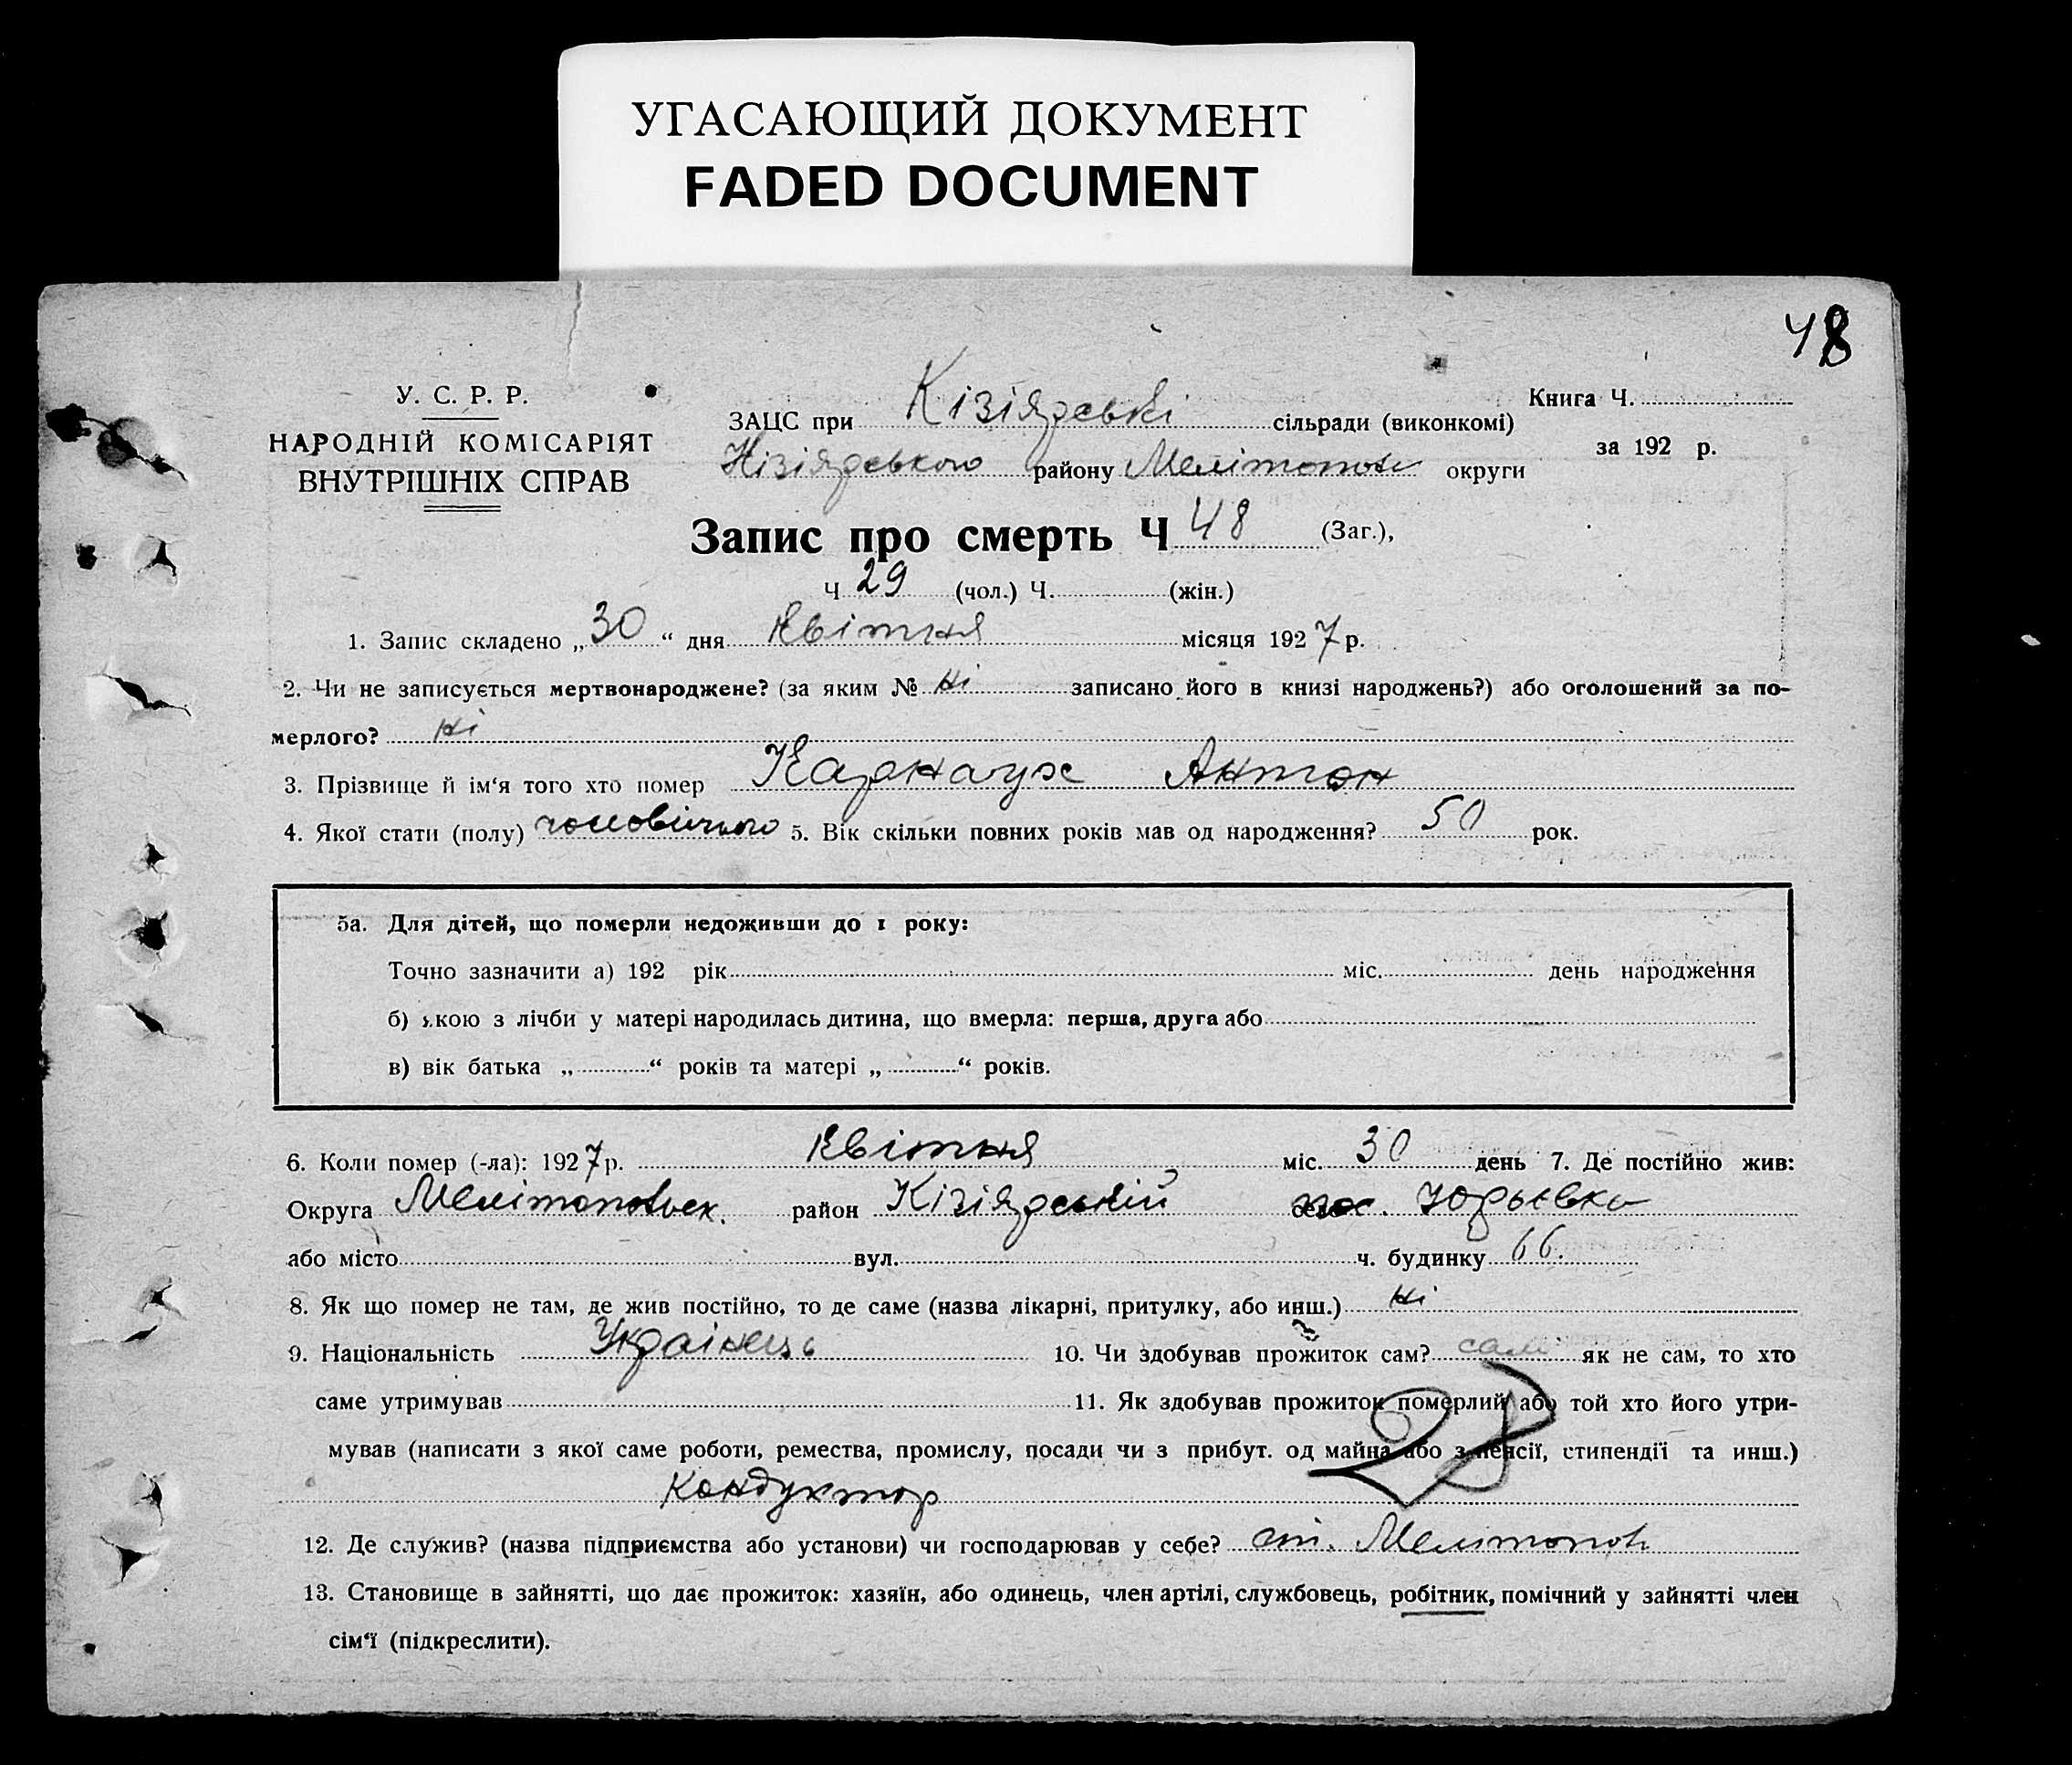 УГАСАЮЩИЙ ДОКУМЕНТ
FADED DOCUMENT
48
У. С. Р. Р.
НАРОДНІЙ КОМІСАРІЯТ
ВНУТРІШНІХ СПРАВ
ЗАЦС при Кізіярські сільради (виконкомі)
Кізіярського району Мелітополь округи
Книга Ч.
за 192 р.
Запис про смерть Ч 48 (Заг.),
Ч 29 (чол.) Ч. (жін.)
1. Запис складено „30“ дня Квітня місяця 1927 р.
2. Чи не записується мертвонароджене? (за яким № ні записано його в книзі народжень?) або оголошений за по-
мерлого? ні
3. Прізвище й ім‘я того хто помер Карнаух Антон
4. Якої стати (полу) чоловічого 5. Вік скільки повних років мав од народження? 50 рок.
5а. Для дітей, що померли недоживши до 1 року:
Точно зазначити а) 192 рік міс. день народження
б) якою з лічби у матері народилась дитина, що вмерла: перша, друга або
в) вік батька „ “ років та матері „ “ років.
6. Коли помер (-ла): 1927 р. Квітня міс. 30 день 7. Де постійно жив:
Округа Мелітопольск. район Кізіярській пос. Юрьевка
або місто вул. ч. будинку 66.
8. Як що помер не там, де жив постійно, то де саме (назва лікарні, притулку, або инш.) ні
9. Національність Українець 10. Чи здобував прожиток сам? сам як не сам, то хто
саме утримував 11. Як здобував прожиток померлий або той хто його утри-
мував (написати з якої саме роботи, ремества, промислу, посади чи з прибут. од майна або з пенсії, стипендії та инш.)
28
Кондуктор
12. Де служив? (назва підприємства або установи) чи господарював у себе? ст. Мелітополь
13. Становище в зайнятті, що дає прожиток: хазяїн, або одинець, член артілі, службовець, робітник, помічний у зайнятті член
сім‘ї (підкреслити).